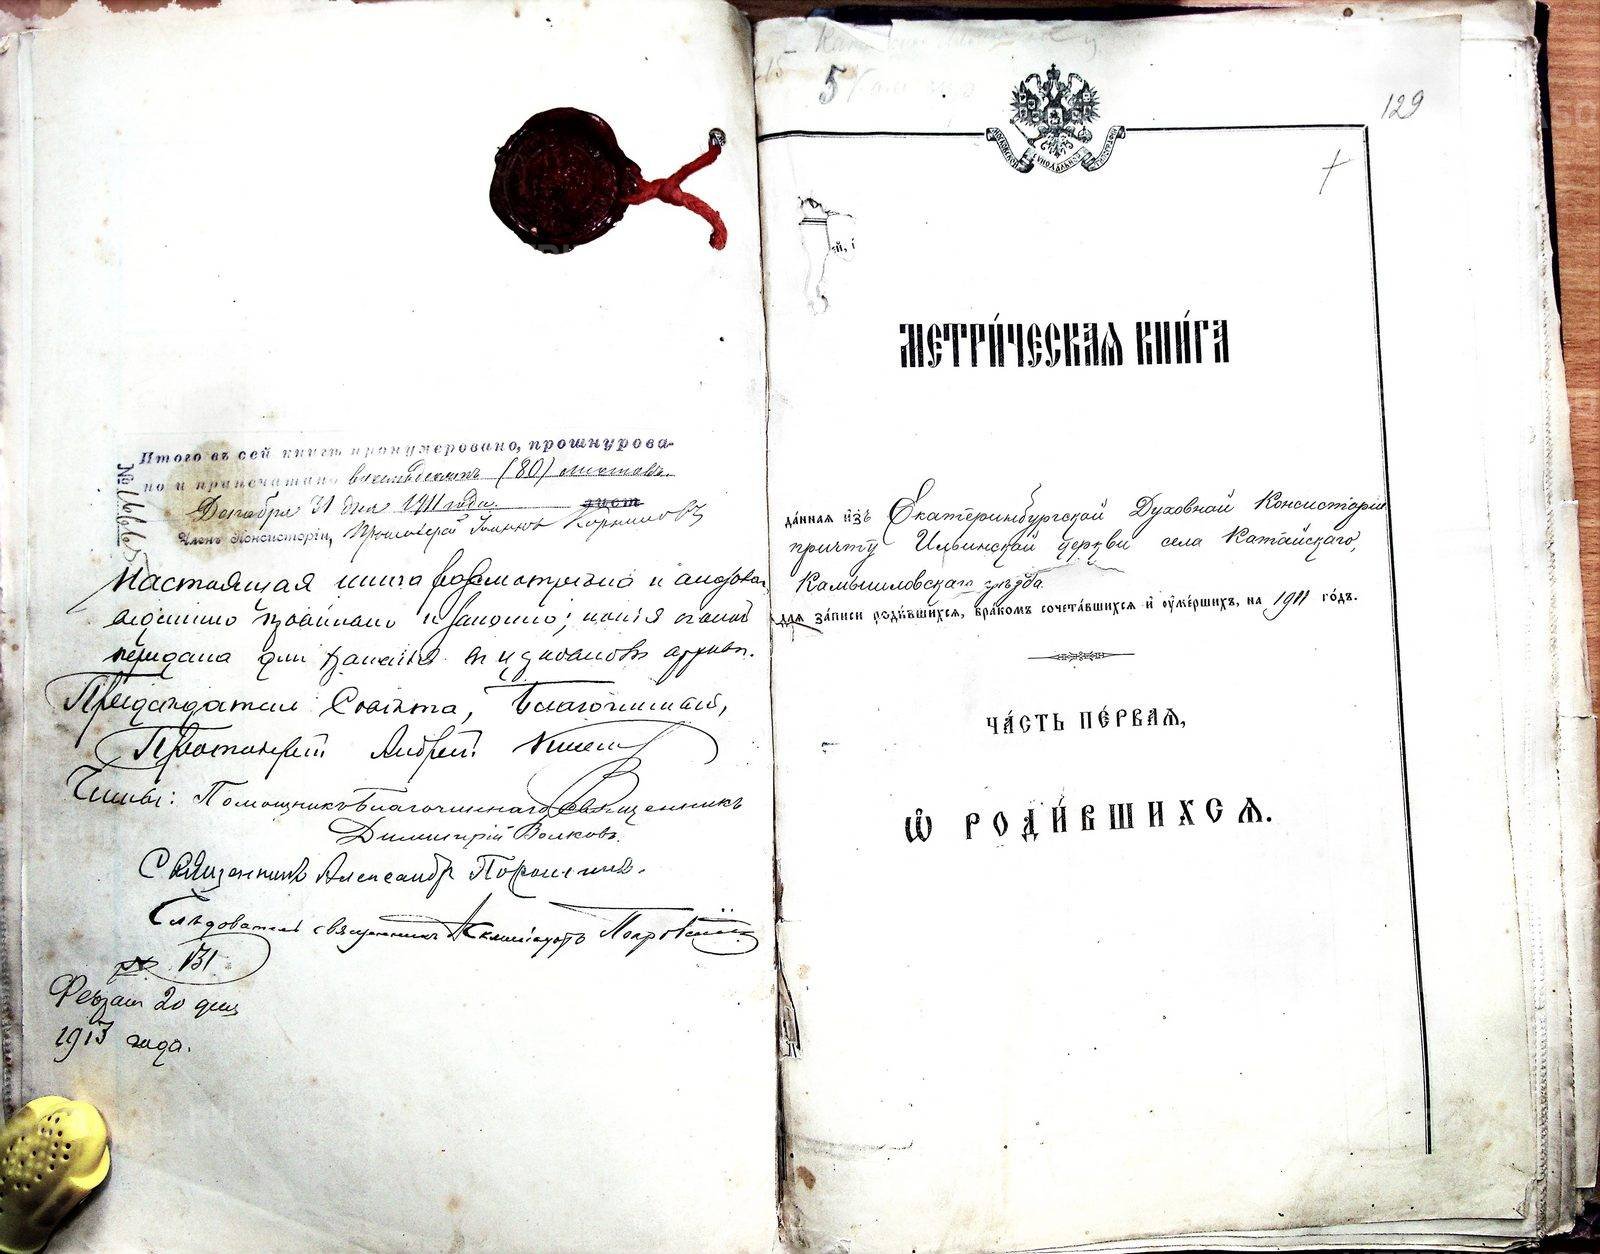 Итого въ сей книгѣ пронумеровано, прошнурова-
но и припечатано восемьдесятъ (80) листовъ.
Декабря 31 дня 1911 года. лист
Членъ Консисторіи, Протоіерей Іоаннъ
№
Настоящая книга разсмотрѣна и
ведённою правильно и законно; копія съ оной
передана для храненія въ архивъ.
Предсѣдатель Совѣта, Благочинный,
Протоіерей Андрей
Члены: Помощникъ Благочиннаго священникъ
Димитрій Волковъ.
Священникъ Александръ
Слѣдователь священникъ Покровскій
№ 131
20 дня
1913 года.
5
129
МОСКОВСКОЙ СѴНОДАЛЬНОЙ ТИПОГРАФІИ
МЕТРИ́ЧЕСКАѦ КНИ́ГА
да́нная и҆зъ Екатеринбургской Духовной Консисторіи
причту Ильинской церкви села Катайскаго,
Камышловскаго уѣзда
для за́писи роди́вшихся, бра́комъ сочета́вшихся и҆ ᲂу҆ме́ршихъ, на 1911 го́дъ.
ЧА́СТЬ ПЕ́РВАѦ,
Ѽ РОДИ́ВШИХСѦ.